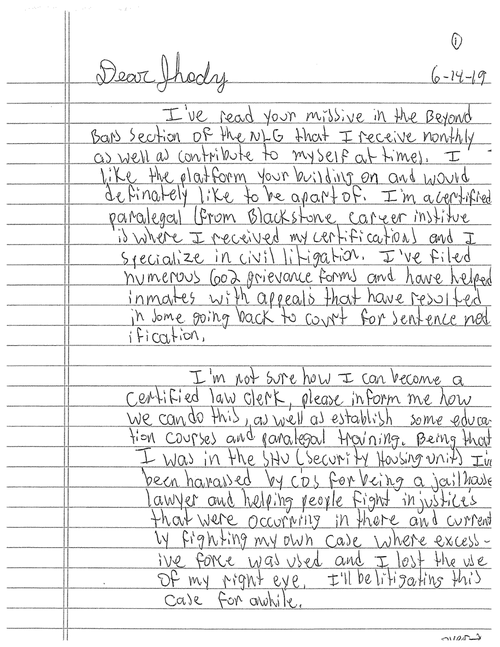 ①
Dear Jhody 6-14-19
I've read your missive in the Beyond
Bars section of the NLG that I receive monthly
as well as contribute to myself at times. I
like the platform your building on and would
definately like to be apart of. I'm a certified
paralegal (from Blackstone career institue
is where I received my certification) and I
specialize in civil litigation. I've filed
numerous 602 grievance forms and have helped
inmates with appeals that have resulted
in some going back to court for sentence mod
ification.
I'm not sure how I can become a
certified law clerk, please inform me how
we can do this, as well as establish some educa-
tion courses and paralegal training. Being that
I was in the SHU (Security Housing unit) I've
been harassed by C/O's for being a jailhouse
lawyer and helping people fight injustice's
that were occurring in there and current
ly fighting my own case where excess-
ive force was used and I lost the use
of my right eye. I'll be litigating this
case for awhile.
over→